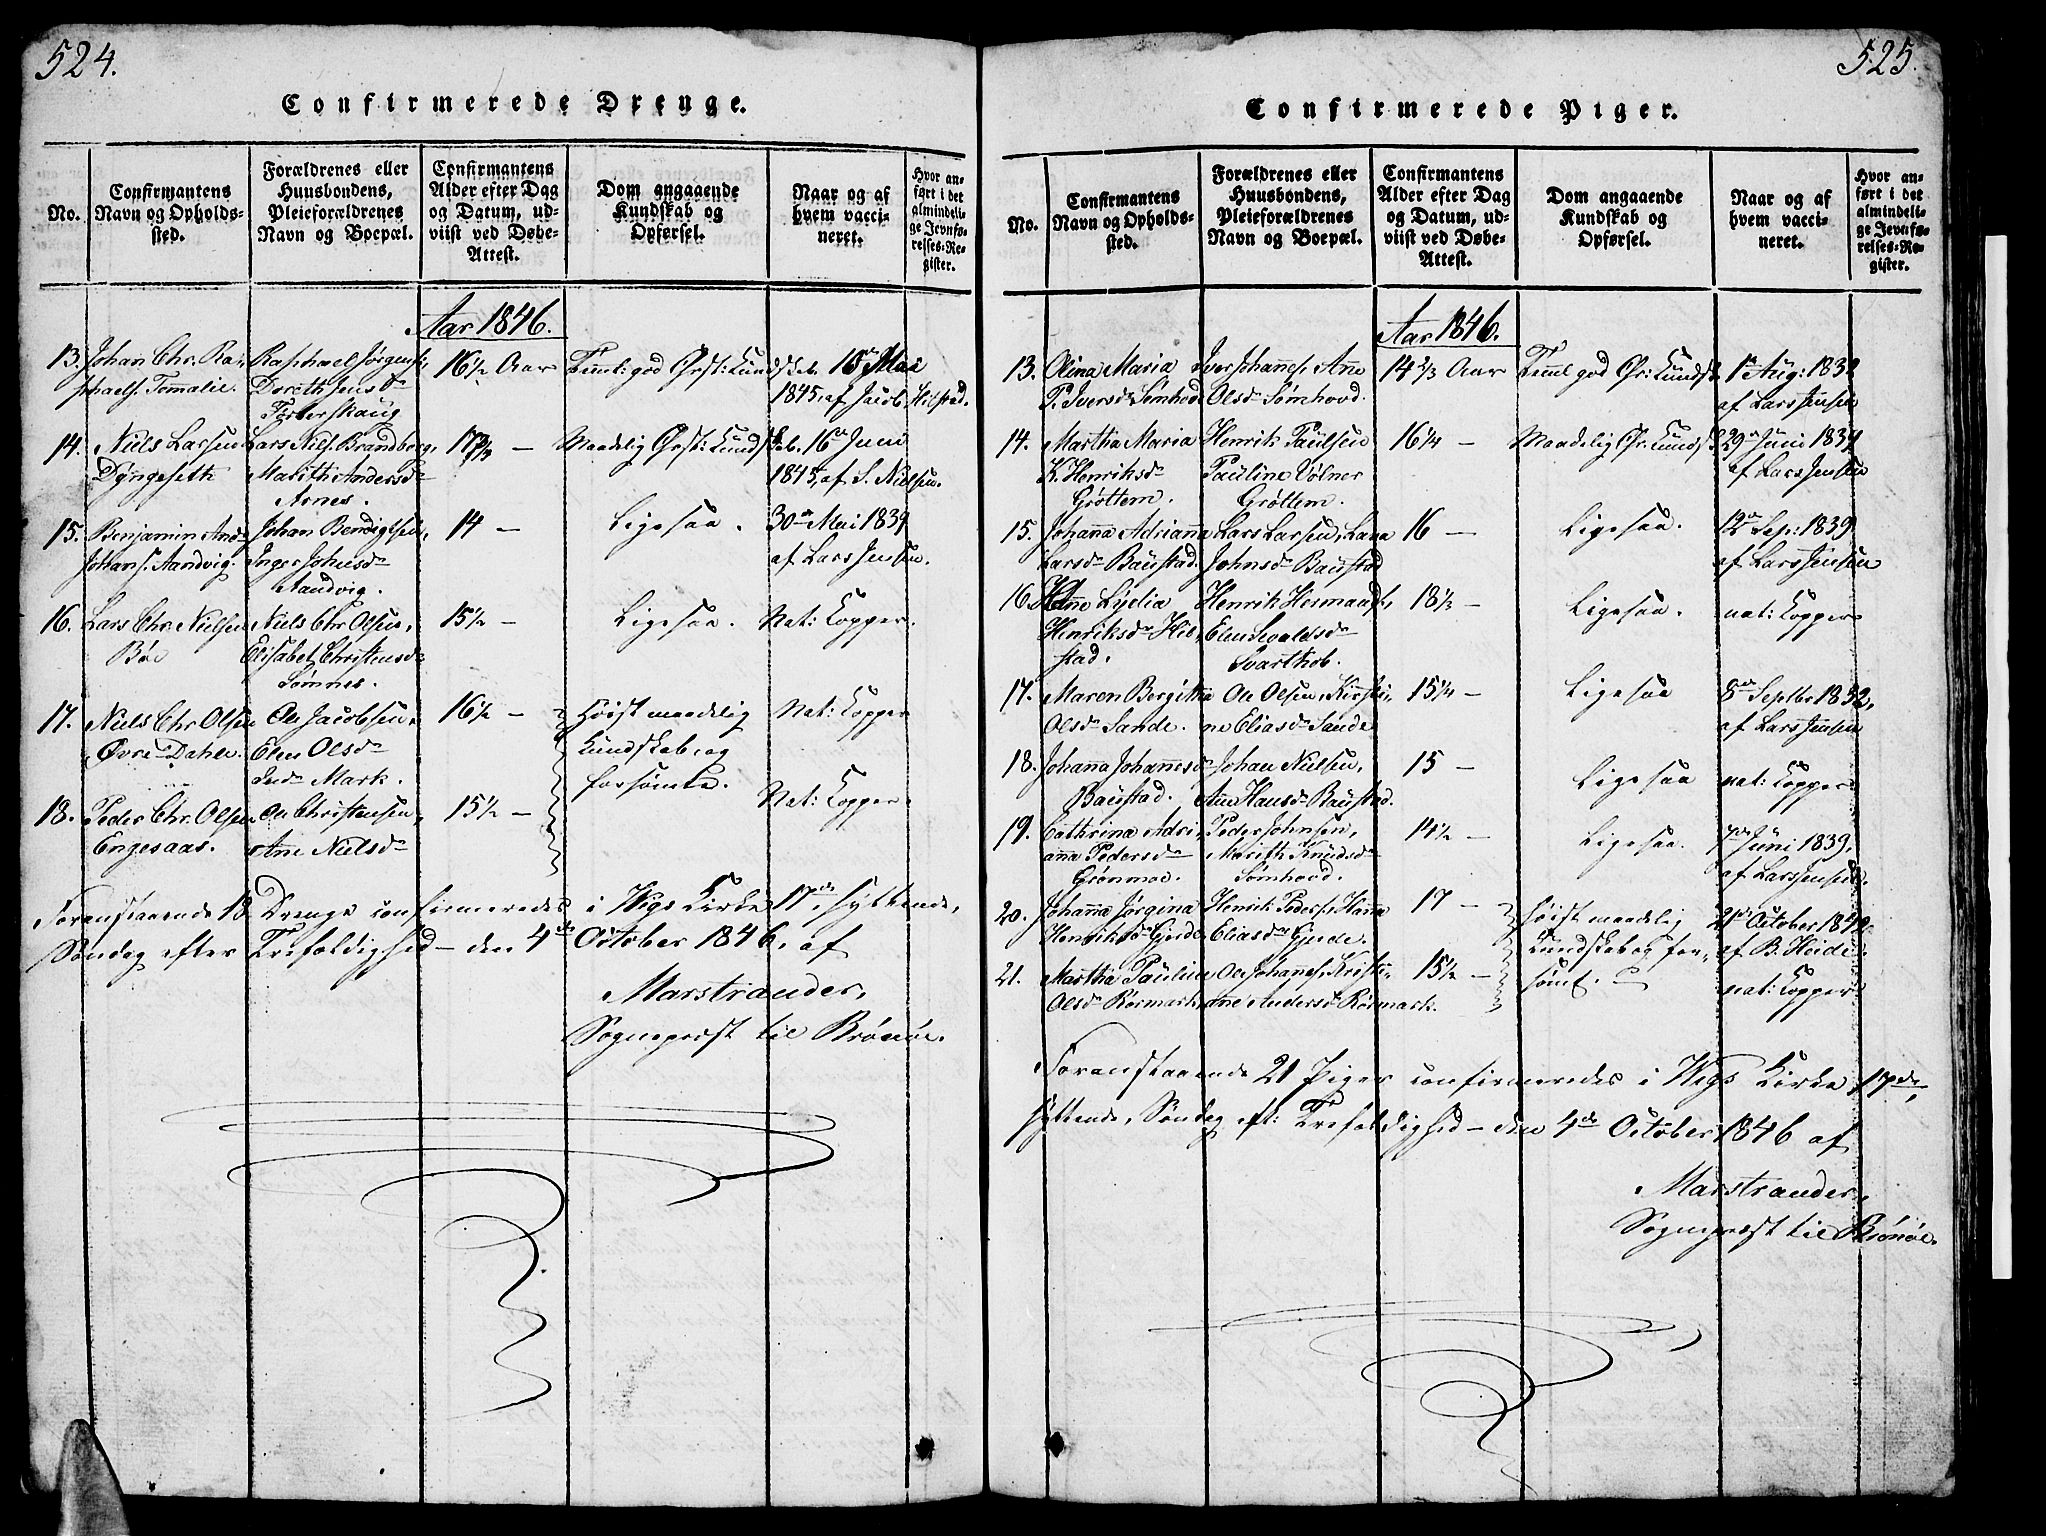 524.
Confirmerede Drenge.
No.
Confirmantens
Navn og Opholds-
sted.
Forældrenes eller
Huusbondens,
Pleieforældrenes
Navn og Boepæl.
Confirmantens
Alder efter Dag
og Datum, ud-
viist ved Døbe-
Attest.
Dom angaaende
Kundskab og
Opførsel.
Naar og af
hvem vacci-
neret.
Hvor an-
ført i det
almindeli-
ge Jevnfø-
relses-Re-
gister.
Aar 1846.
13. Johan Chr. Ra-
phaels. Tomalie.
Raphael Jørgens:,
Doreth Justd.
Torberskaug
16½ Aar
Teml: god Chrst: Kundskab.
10de Mai
1845, af Jacob Hilstad.
14. Niels Larsen
Dyngeseth
Lars Niels. Brandberg,
Marith Andersd.
Arnes.
17⅔ —
Maadelig Chrst: Kundskab.
16de Juni
1845, af S. Nielsen.
15. Benjamin And.
Johans. Aandvig.
Johan Bendigtsen,
Inger Johnsd.
Aandvig.
14 —
Ligesaa.
30de Mai 1839
af Lars Jensen.
16. Lars Chr. Nielsen
Bøe
Niels Chr. Olsen,
Elisabet Christensd.
Sømnes.
15½ —
Ligesaa.
Nat: Kopper.
17. Niels Chr. Olsen
Øvre Dahle.
Ole Jacobsen,
Elen Olsd.
Ind. Mark.
16½ —
Høist maadelig
Kundskab, og
forsømte.
Nat: Kopper
18. Peder Chr. Olsen
Engesaas.
Ole Christensen,
Ane Nielsd.
15½ —
Nat: Kopper.
Foranstaaende 18 Drenge confirmeredes i Wigs Kirke 17de, syttende,
Søndag efter Trefoldighed — den 4de October 1846, af
Marstrander,
Sognepræst til Brønøe.
525.
Confirmerede Piger.
No.
Confirmantens
Navn og Opholds-
sted.
Forældrenes eller
Huusbondens,
Pleieforældrenes
Navn og Boepæl.
Confirmantens
Alder efter Dag
og Datum, ud-
viist ved Døbe-
Attest.
Dom angaaende
Kundskab og
Opførsel.
Naar og af
hvem vacci-
neret.
Hvor an-
ført i det
almindeli-
ge Jevnfø-
relses-Re-
gister.
Aar 1846.
13. Olina Maria
P. Iversd. Sømhovd
Iver Johannes., Ane
Olsd. Sømhovd.
14⅔ Aar
Teml god Chr: Kundsk.
1ste Aug: 1832
af Lars Jensen
14. Martha Maria
K. Henriksd.
Grøttem.
Henrik Paulsen
Pauline Volner
Grøttem.
16¼ —
Maadelig Chr: Kundsk.
29de Juni 1834
af Lars Jensen
15. Johanna Adrianna
Larsd. Baustad.
Lars Larsen, Lana
Johnsd. Baustad
16 —
Ligesaa.
12de Sep: 1839
af Lars Jensen
16. Ane Lydia
Henriksd. Hil-
stad.
Henrik Hermands.,
Elen Sevaldsd.
Svarthob.
18⅓ —
Ligesaa.
nat: Kopper
17. Maren Bergitha
Olsd. Sande.
Ole Olsen, Kirsti-
ne Eliasd. Sande
15¼ —
Ligesaa
8de Septbr 1832,
af Lars Jensen
18. Johanna Johannesd.
Baustad.
Johan Nielsen,
Ane Hansd. Baustad.
15 —
Ligesaa
nat: Kopper
19. Cathrina Adri-
anna Pedersd.
Grønmoe.
Peder Johnsen,
Marith Knudsd.
Sømhovd.
14½ —
Ligesaa.
7de Juni 1839,
af Lars Jensen.
20. Johanna Jørgina
Henriksd. Gjerde
Henrik Peders., Hanna
Eliasd. Gjerde.
17 —
Høist maadelig
Kundskab og for-
sømt.
21de October 1842
af B. Heide.
21. Martha Pauline
Olsd. Rørmark.
Ole Johannes., Kristi-
anne Andersd. Rørmark.
15½ —
nat: Kopper
Foranstaaende 21 Piger confirmeredes i Wigs Kirke, 17de,
syttende, Søndag eft: Trefoldighed — den 4de October 1846 af
Marstrander,
Sognepræst til Brønøe.